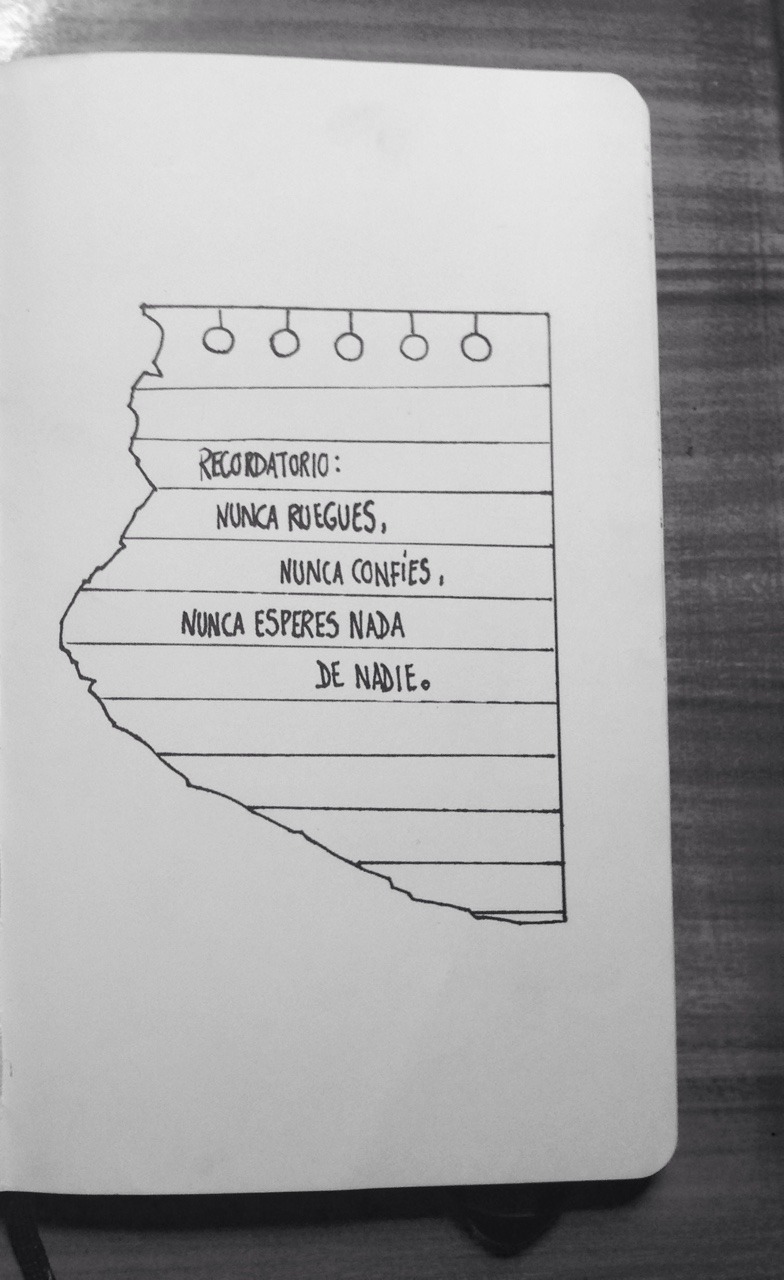 RECORDATORIO:
NUNCA RUEGUES,
NUNCA CONFÍES,
NUNCA ESPERES NADA
DE NADIE.